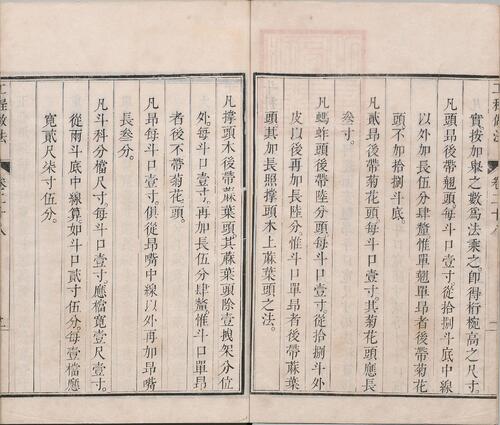 工程做法 卷二十八
凡實按加舉之數爲法乘之即得桁椀高之尺寸
凡頭昂後帶翹頭每斗口壹寸從拾捌斗底中線
以外加長伍分肆釐惟單翹單昂者後帶菊花
頭不加拾捌斗底
凡貳昂後帶菊花頭每斗口壹寸其菊花頭應長
叁寸
凡螞蚱頭後帶陸分頭每斗口壹寸從拾捌斗外
皮以後再加長陸分惟斗口單昂者後帶蔴葉
頭其加長照撐頭木上蔴葉頭之法
凡撐頭木後帶蔴葉頭其蔴葉頭除壹拽架分位
外每斗口壹寸再加長伍分肆釐惟斗口單昂
者後不帶菊花頭
凡昂每斗口壹寸俱從昂嘴中線以外再加昂嘴
長叁分
凡斗科分檔尺寸每斗口壹寸應檔寬壹尺壹寸
從兩斗底中線算如斗口貳寸伍分每壹檔應
寬貳尺柒寸伍分
工程做法 卷二十八